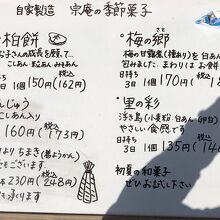 自家製造 宗庵の季節菓子
柏餅
お子さんの成長を願って
こしあん 粒あん みそあん
日持ち 3日 1個150円(税込162円)
160円(税込173円)
ちまき(羊ようかん)
230円(税込248円)
梅の郷
梅の甘露煮(種あり)を白あん
包みました。まわりはお餅
日持ち 3日 1個170円(税込
里の彩
浮き島(小麦粉・白あん・卵白)
やさしい食感です
日持ち 3日 1個135円(税込146
初夏の和菓子
ぜひお試し下さい